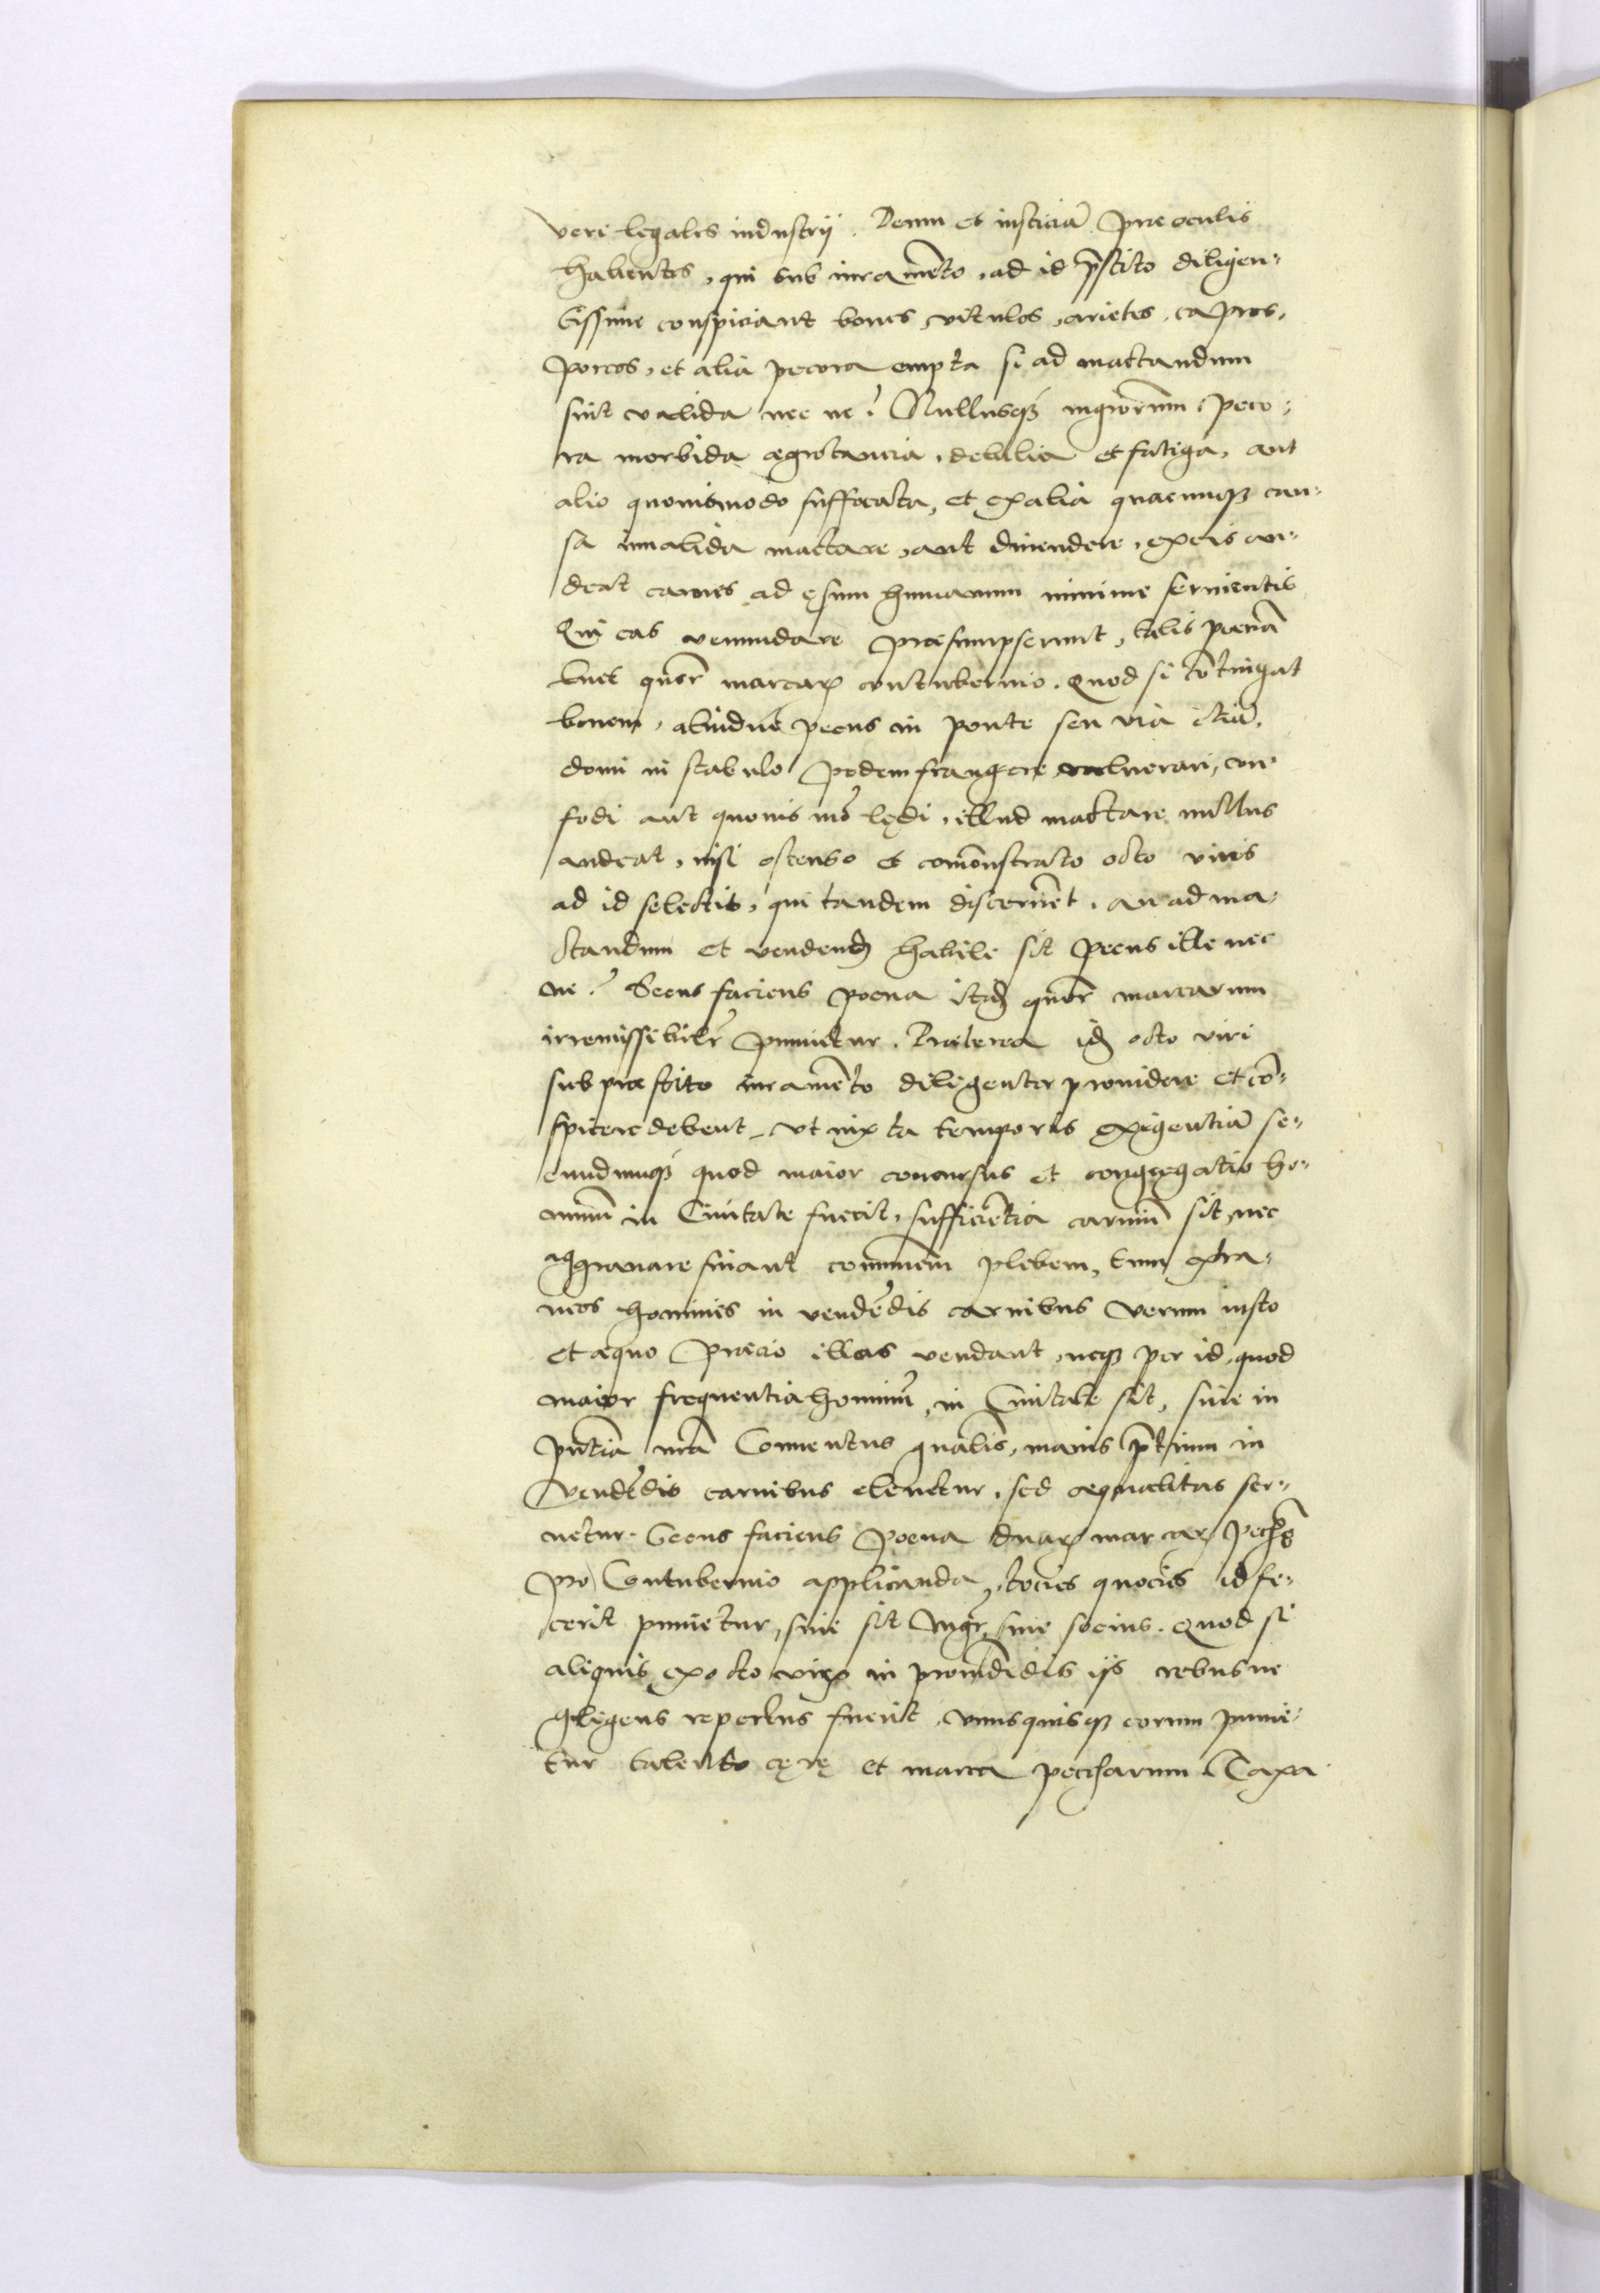 veri legales industrij. Deum et iusticiã prae oculis
habentes, qui sub iuramẽto, ad id p̃stito diligen-
tissime conspiciant boues, vitulos, arietes, capros,
porcos, et alia pecora empta si ad mactandum
sint valida nec ne? Nullusq3 mgrorum, peco-
ra morbida ægrotancia, debilia et fatiga, aut
alio quouismodo suffocata, et ex alia quacunq3 cau-
sa inualida mactare, aut diuendere, ex eis au-
deat carnes ad ęsum humanum minime seruientis
Qui eas venundare præsumpserint, talis poenã
luet quor̃ marcarꝝ contubernio. Quod si cõtingat
bouem, aliudue pecus in ponte seu via etiã,
domi in stabulo pedem frangere, vulnerari, con-
fodi aut quouis mõ lędi, illud mactare nullus
audeat, nisi ostenso et comõnstrato octo viris
ad id selectis, qui tandem discernẽt, an ad ma-
ctandum et vendend habile sit pecus ille nec
ne? Secus faciens poena itid quor̃ marcarum
irremissibilr̃ punietur. Præterea id octo viri
sub præstito iuramẽto diligenter prouidere et cõ-
spicere debent, vt iuxta temporis exigentiã se-
cundumq3 quod maior concursus et congregatio ho-
minũ in Ciuitate fuerit, sufficiẽtia carniũ sit, nec
aggrauare sinant comunem plebem, tum extra-
neos homines in vendẽdis carnibus verum iusto
et æquo præcio illas vendant, neq3 per id, quod
maior frequentia hominũ, in Ciuitate sit, siue in
pñtia nrã Conuentus gnãlis, maius p̃tium in
vendẽdis carnibus eleuetur, sed æqualitas ser-
uetur. Secus faciens poena duarꝝ marcarꝝ pech
pro Contubernio applicanda, tocies quocies id fe-
cerit punietur, siue sit mgr̃, siue socius. Quod si
aliquis ex octo virꝝ in prouidẽdis ijs rebus ne
gligens repertus fuerit, vnusquisq3 eorum punie-
tur talento cęrę et marca pecharum. Taxa